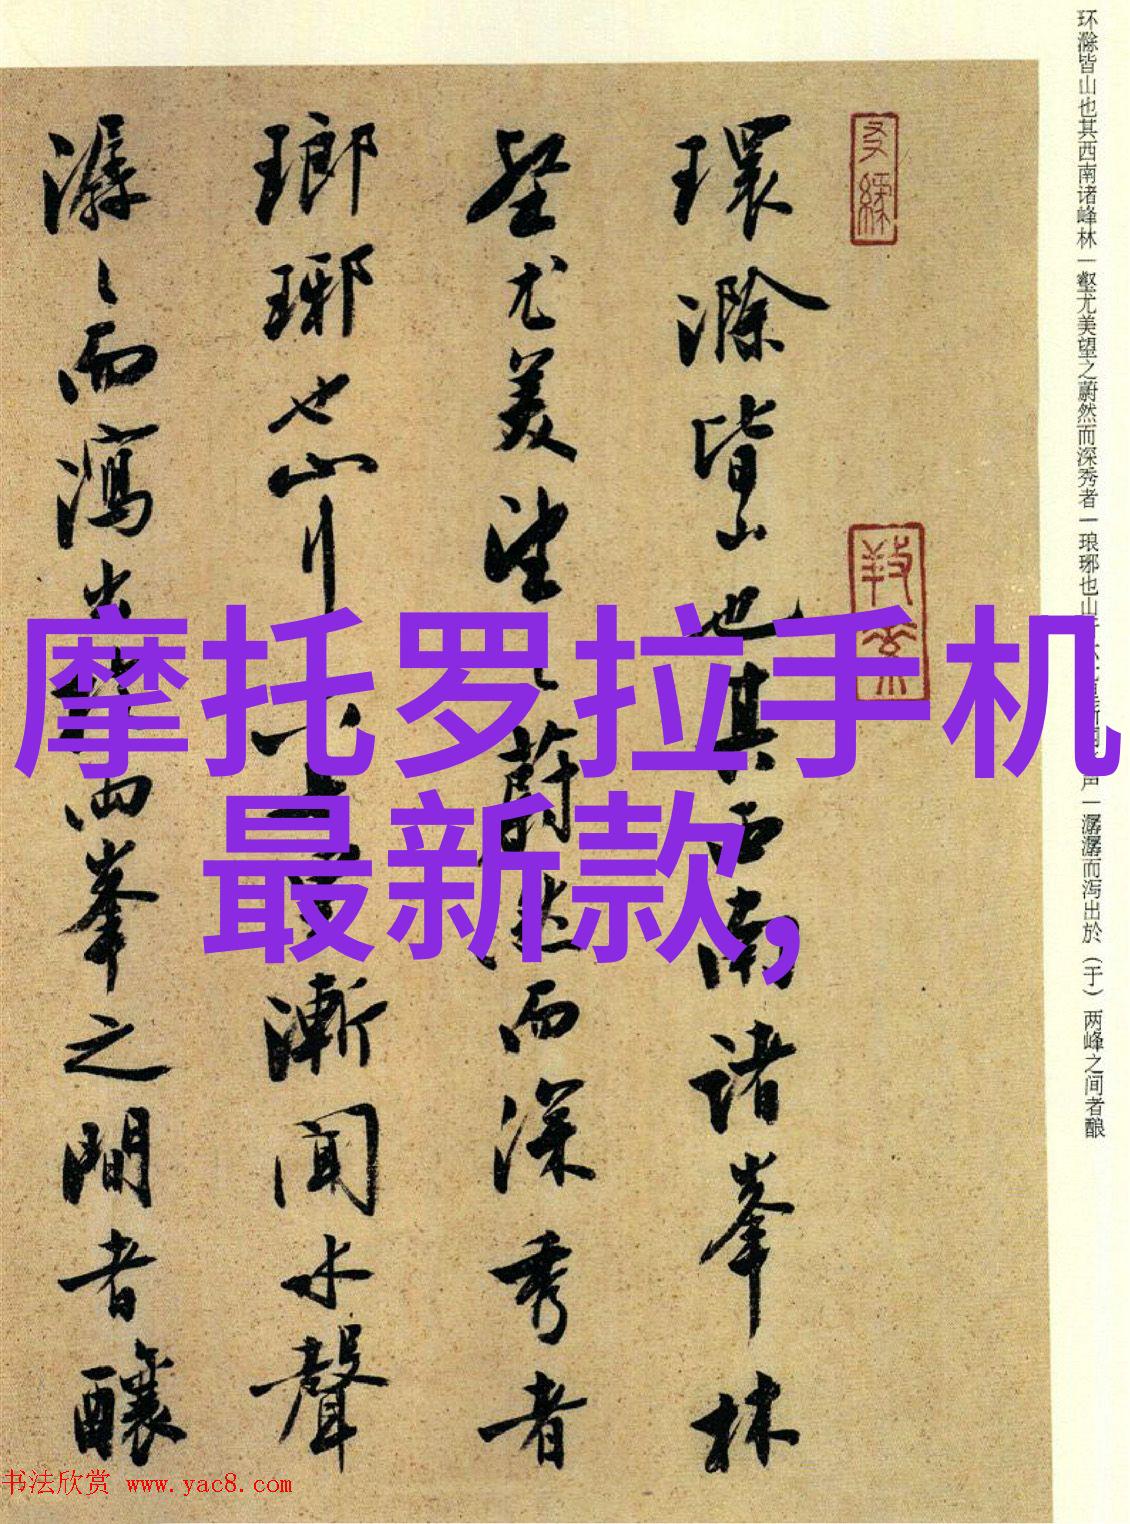 环滁皆山也其西南诸峰林一壑尤美望之蔚然而深秀者一琅琊也山 声一潺潺而泻出於（于）两峰之间者酿
環滁皆山也其西南諸峯林
壑尤美望之蔚然而深秀者
瑯琊也山行 漸聞水聲
潺〻而瀉出 兩峯之間者釀
摩托罗拉手机
最新款,
书法欣赏 www.yac8.com